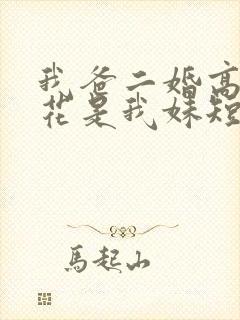 我爸二婚高
花是我妹短
馬起山